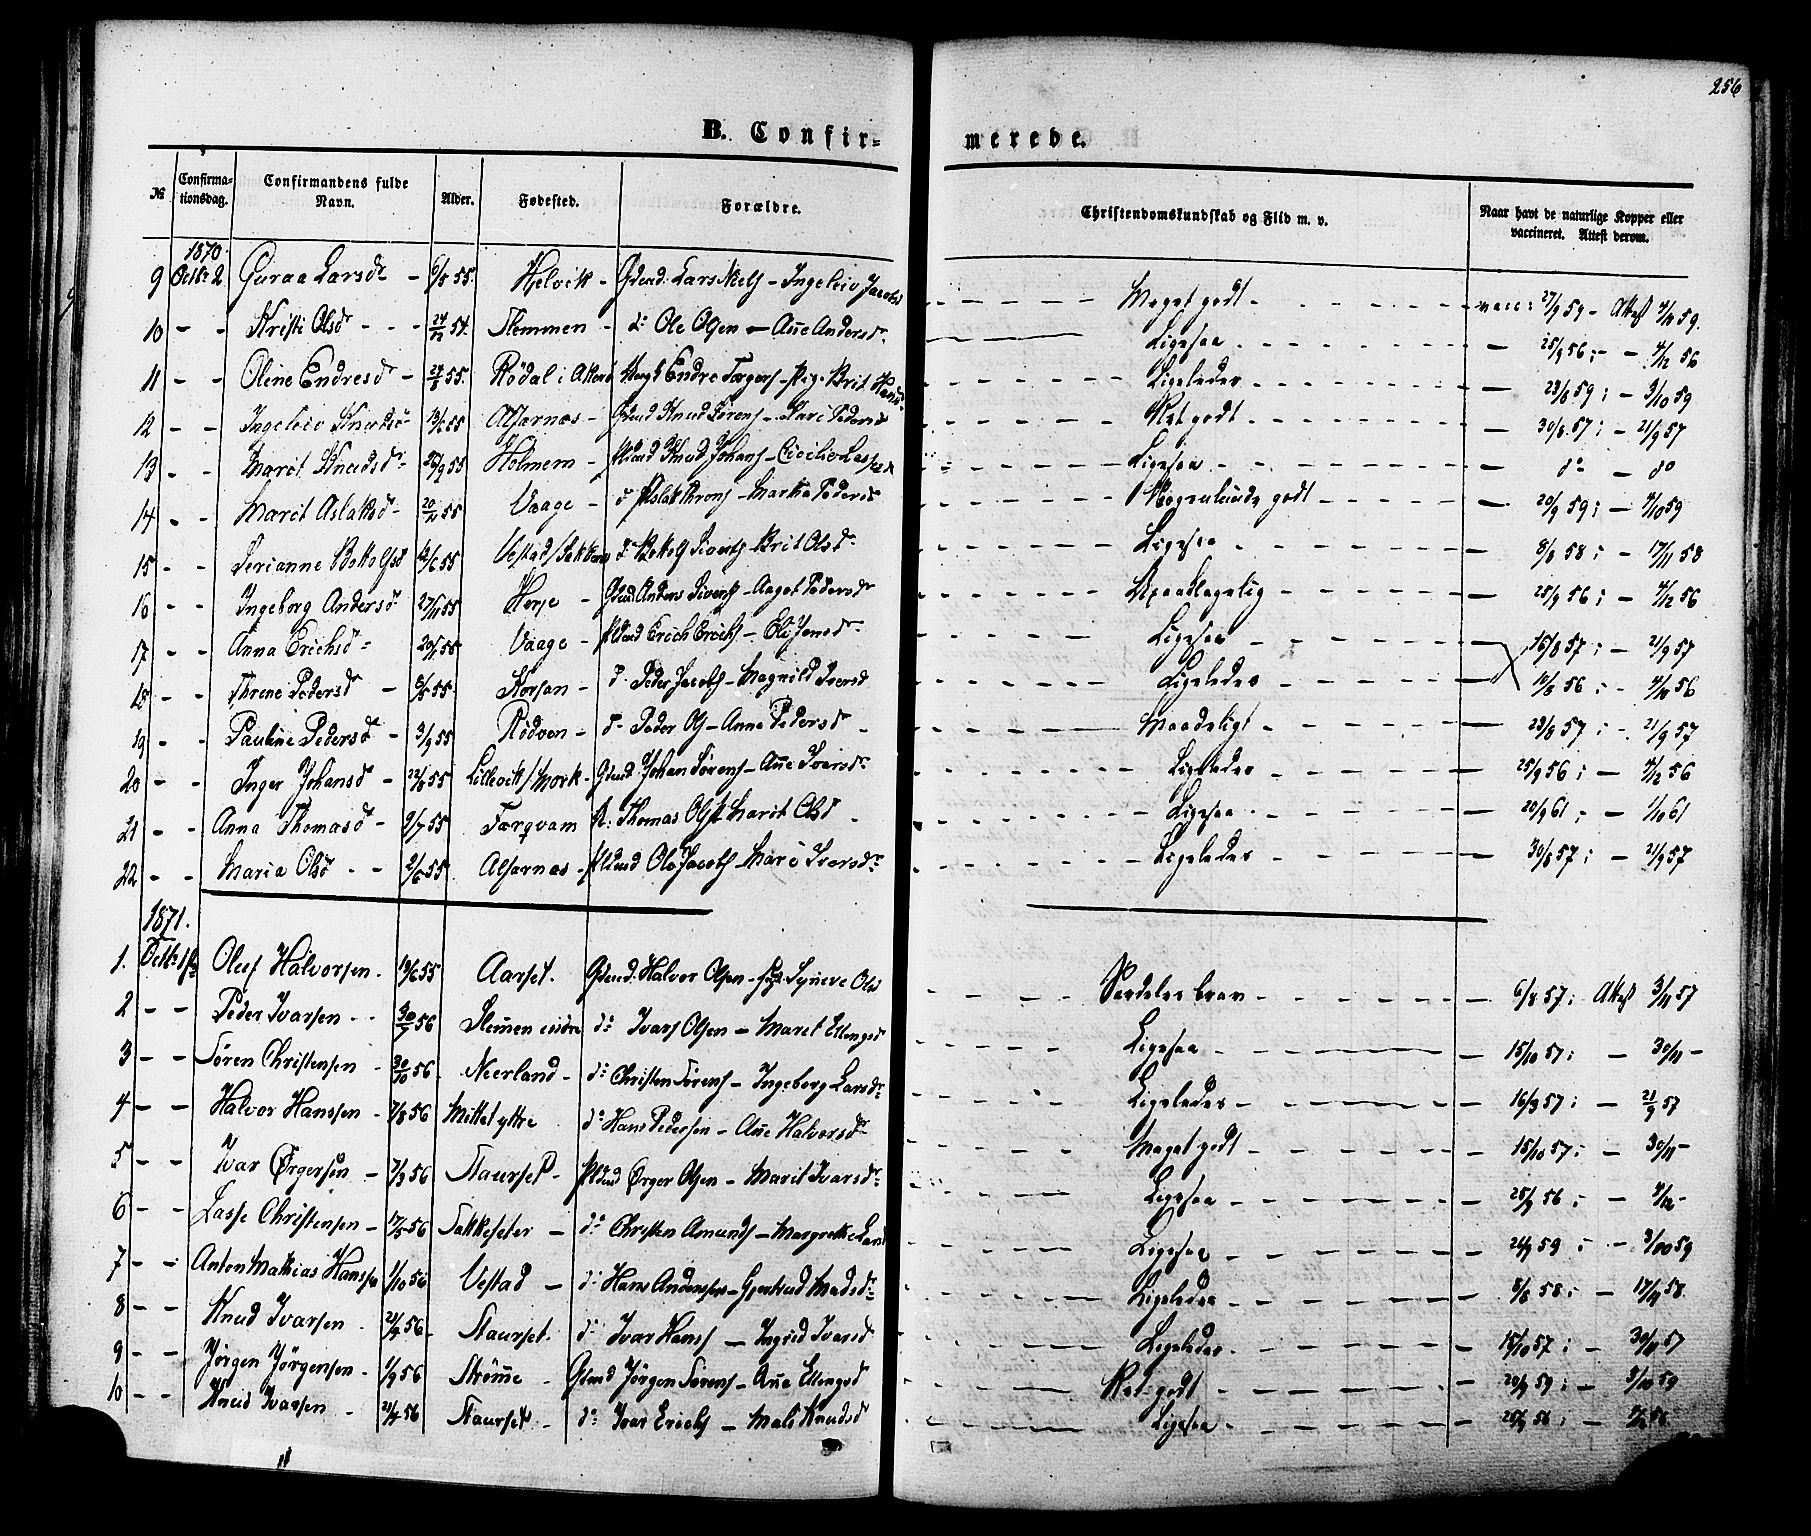 256
B. Confir- merede.
№ Confirmationsdag. Confirmandens fulde Navn. Alder. Fødested. Forældre. Christendomskundskab og Flid m. v. Naar havt de naturlige Kopper eller vaccineret. Attest derom.
1870.
9 Octbr 2 Guraa Larsdr - 6/8 55. Hjelvik - Gdmd: Lars Niels - Ingeleiv Jacobsd Meget godt - vacc: 27/9 59 - Attest 59.
10 - - Kristi Olsdr - - - 54. Slemmen - do Ole Olsen - Ane Andersdr Ligesaa - 25/9 56 - - 4/12 56
11 - - Oline Endresdr - 55. Rødal i Endre - Brit Ligeledes - 23/8 59 : - 3/10 59
12 - - Ingeleiv Knudsdr 55 Alfarnæs - Gdmd Knud Sørens - Mari Pedersd Ret godt - 30/8 57 ; - 21/9 57
13 - - Marit Knudsdr 25/9 55 Holmem - Pldmd Knud Johans - Ligesaa - do - do
14 - - Marit Aslaksd - 55 Vaage - do Aslak - Martha Pedersd Nogenlunde godt - 20/9 59 ; - 59
15 - - Serianne 55 Vestad - Brit Olsdr Ligesaa - 8/8 58 ; - 17/11 58
16 - - Ingeborg Andersdr 27/11 55 Herje - Gdmd Anders Siverts - Aagot Pedersdr Upaaklagelig - 25/9 56 ; - 4/12 56
17 - - Anna Erichsdr 55 Vaage - Pldmd Erich Erichs - Eli Jensdr Ligesaa - 16/8 57 ; - 21/9 57
18 - - Threne Pedersd - 55. do Peder Jacobs - Magnild Iversd Ligeledes - 56 - 56
19 - - Pauline Pedersdr - 3/9 55 Rødven - do Peder Ols - Anne Pedersdr Maadeligt - 23/8 57 ; - 21/9 57
20 - - Inger Johansd - 22/8 55 Lillevik/Mork - Gdmd: Johan Sørens - Ane Iversdr Ligeledes - 25/9 56 ; - 4/12 56
21 - - Anna Thomasd - 9/7 55 Torqvam Thomas Ols Marit Olsd Ligesaa - 20/9 61 ; - 1/10 61
22 - - Maria Olsd - - 2/6 55 Alfarnæs - Pldmd Ole Jacobs - Mari Iversdr Ligeledes 30/8 57 ; - 21/9 57
1871.
1. Octbr 1ste Oluf Halvorsen. 55 Aarset. Gdmd: Halvor Olsen - Synneve Olsd Særdeles brav - 6/8 57 ; Attest 3/11 57
2 - - Peder Ivarsen - - 30/7 56 Slemmen indre do Ivars Olsen - Maret Ellingsd Ligesaa - 15/10 57 ; - 30/11 -
3 - - Søren Christensen - 30/10 56 Neerland - do Christen Sørens - Ingeborg Larsdr Ligeledes - 16/9 57 ; - 21/9 57
4 - - Halvor Hanssen - 7/8 56 Mittet yttre do Hans Pedersen - Ane Halvorsdr Meget godt - 15/10 57 ; - 30/11 -
5 - - Ivar Ørgersen - 56 Staurset - Pldmd Ørger Olsen - Marit Ivarsdr Ligesaa - 25/9 56 ; - 4/12 -
6 - - Lasse Christensen - 17/5 56 Sakkeseter - do Christen Amunds - Margrethe Larsd Ligesaa - 59 ; - 3/10 59
7 - - Anton Mathias Hanssen 1/10 56 Vestad - do Hans Andersen - Gjertrud Madsdr Ligeledes - 8/8 58 ; - 17/11 58
8 - - Knud Ivarsen - 56 Staurset. do Ivar Hans - Ingrid Ivarsd Ligeledes - 15/10 57 ; - 30/11 57
9 - - Jørgen Jørgensen - 1/9 56 Strømme - Gdmd Jørgen Sørens - Ane Ellingsd Ret godt - 20/9 59 ; - 3/10 59
10 - - Knud Ivarsen - 56 Staurset - do Ivar Erichs - Mali Knudsd Ligesaa - 25/9 56 ; - 56